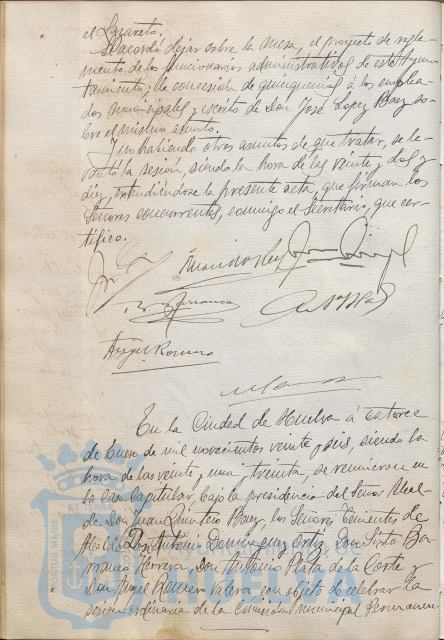 el Lazareto.
Se acordó dejar sobre la mesa, el proyecto de regla-
mento de los funcionarios administrativos de este Ayun-
tamiento; la concesión de quinquenios á los emplea-
dos municipales y escrito de Don José Lopez Baez so-
bre el mismo asunto.
Y no habiendo otros asuntos de que tratar, se le-
vantó la sesión, siendo la hora de las veinte y dos y
diez, extendiéndose la presente acta, que firman los
Señores concurrentes, conmigo el Secretario, que cer-
tifico.
Angel Romero
En la Ciudad de Huelva á catorce
de Enero de mil novecientos veinte y seis, siendo la
hora de las veinte y una y treinta, se reunieron en
la Casa Capitular, bajo la presidencia del Señor Alcal-
de Don Juan Quintero Baez, los Señores Tenientes de
Alcalde Don Antonio Dominguez Ortiz, Don Sixto Ba-
rranco Herrera, Don Antonio Plata de la Corte y
Don Angel Romero Valera con objeto de celebrar la
sesión ordinaria de la Comisión Municipal Permanen-
PORTUS MARIS ET TERRÆ
HUELVA